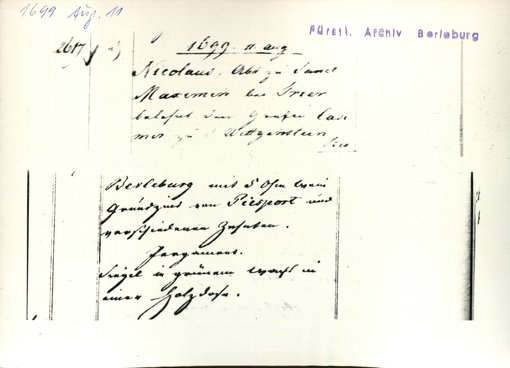 1699 Aug. 11
Fürstl. Archiv Berleburg
2617
1699. 11. aug
Nicolaus, Abt zu Sanct
Maxemin bei Trier
belehnt den Grafen Casi
mir zu Wittgenstein
Berleburg mit 5 Ohm wein
Grundzins von Piesport und
verschiedenen Zehnten.
Pergament.
Siegel in grünem wachs in
einer Holzdose.